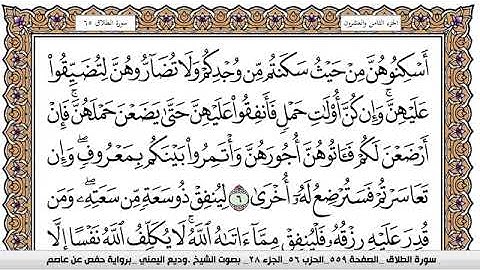 الجزء الثامن والعشرون
سورة الطلاق ٦٥
أَسْكِنُوهُنَّ مِنْ حَيْثُ سَكَنتُم مِّن وُجْدِكُمْ وَلَا تُضَآرُّوهُنَّ لِتُضَيِّقُوا۟
عَلَيْهِنَّ ۚ وَإِن كُنَّ أُو۟لَٰتِ حَمْلٍ فَأَنفِقُوا۟ عَلَيْهِنَّ حَتَّىٰ يَضَعْنَ حَمْلَهُنَّ ۚ فَإِنْ
أَرْضَعْنَ لَكُمْ فَـَٔاتُوهُنَّ أُجُورَهُنَّ ۖ وَأْتَمِرُوا۟ بَيْنَكُم بِمَعْرُوفٍ ۖ وَإِن
تَعَاسَرْتُمْ فَسَتُرْضِعُ لَهُۥٓ أُخْرَىٰ ٦ لِيُنفِقْ ذُو سَعَةٍ مِّن سَعَتِهِۦ ۖ وَمَن
قُدِرَ عَلَيْهِ رِزْقُهُۥ فَلْيُنفِقْ مِمَّآ ءَاتَىٰهُ ٱللَّهُ ۚ لَا يُكَلِّفُ ٱللَّهُ نَفْسًا إِلَّا
سورة الطلاق _الصفحة ٥٥٩_ الحزب ٥٦_ الجزء ٢٨_ بصوت الشيخ _وديع اليمني _برواية حفص عن عاصم